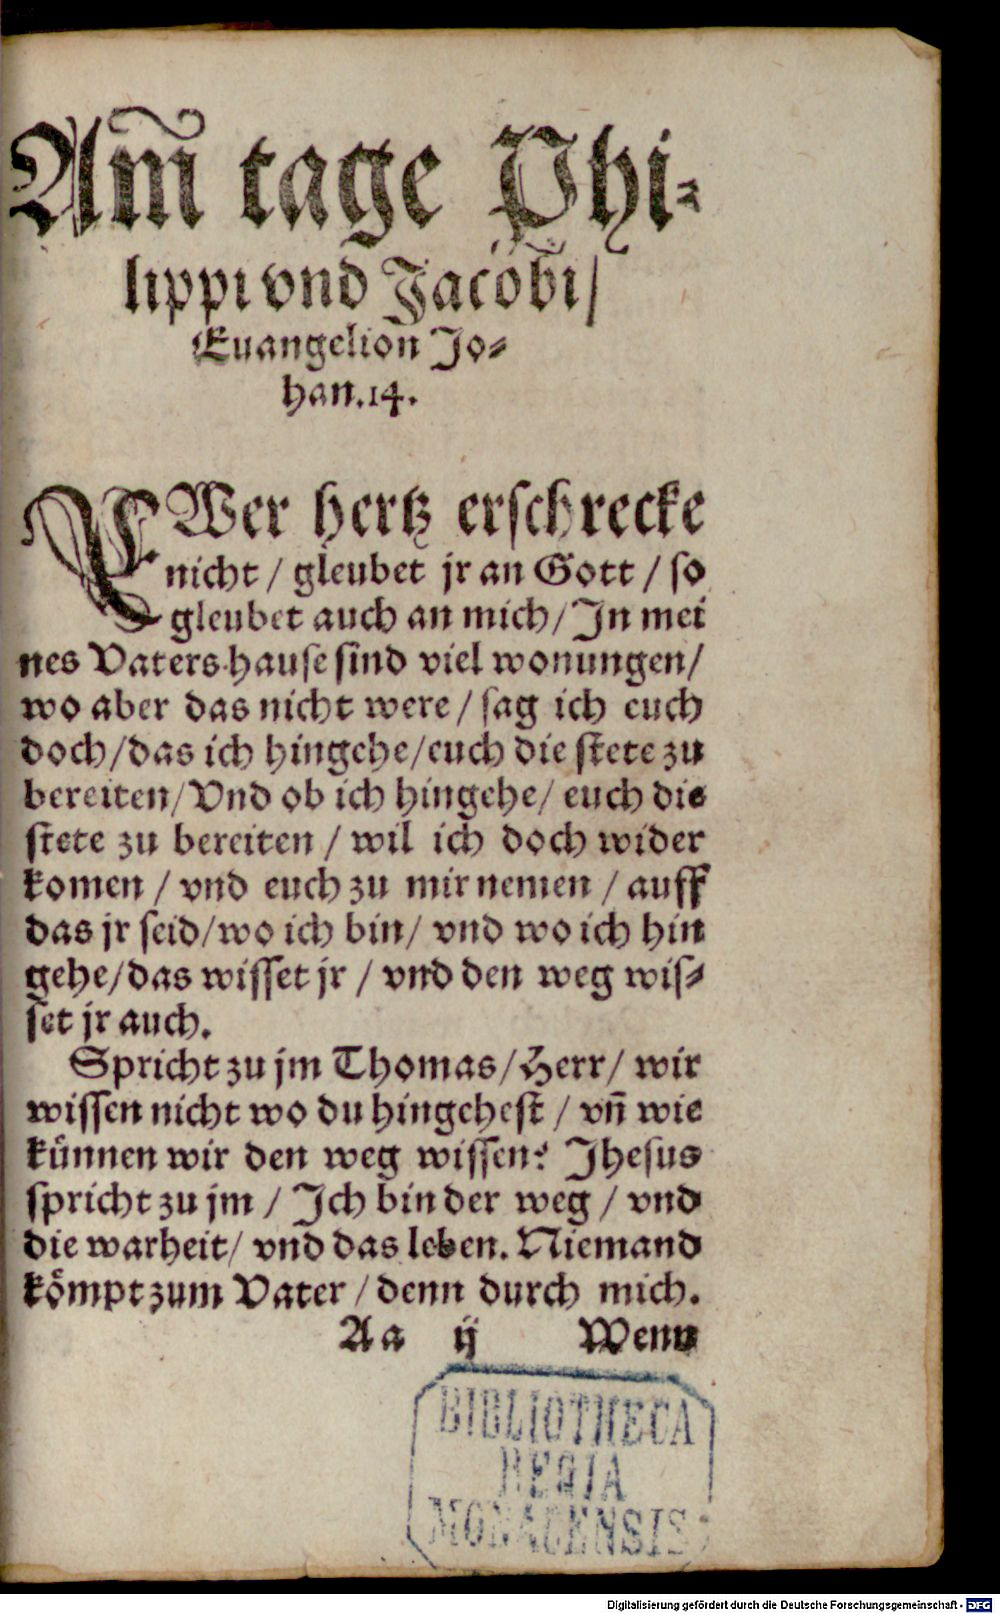 Am̃ tage Phi-
lippi vnd Jacobi /
Euangelion Jo-
han. 14.
EWer hertz erschrecke
nicht / gleubet jr an Gott / so
gleubet auch an mich / In mei
nes Vaters hause sind viel wonungen /
wo aber das nicht were / sag ich euch
doch / das ich hingehe / euch die stete zu
bereiten / Vnd ob ich hingehe / euch die
stete zu bereiten / wil ich doch wider
komen / vnd euch zu mir nemen / auff
das jr seid / wo ich bin / vnd wo ich hin
gehe / das wisset jr / vnd den weg wis-
set jr auch.
Spricht zu jm Thomas / Herr / wir
wissen nicht wo du hingehest / vn̄ wie
künnen wir den weg wissen? Jhesus
spricht zu jm / Ich bin der weg / vnd
die warheit / vnd das leben. Niemand
kömpt zum Vater / denn durch mich.
Aa ij Wenn
BIBLIOTHECA
REGIA
MONACENSIS
Digitalisierung gefördert durch die Deutsche Forschungsgemeinschaft - DFG